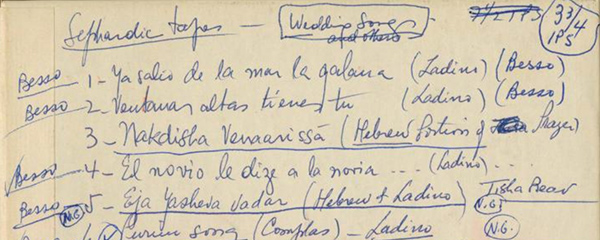 Sephardic tapes — Wedding Songs and others 3 3/4 IPS
Besso 1 - Ya salio de la mar la galana (Ladino) (Besso)
Besso 2 - Ventanas altas tienes tu (Ladino) (Besso)
3 - Nakdisha Venaarissá (Hebrew Portion of Prayer)
Besso 4 - El novio le dize a la novia ... (Ladino) ...
Besso N.G. 5 - Eja Yasheva vadar (Hebrew + Ladino) Tisha Beav N.G.
Song (Complas) - Ladino N.G.